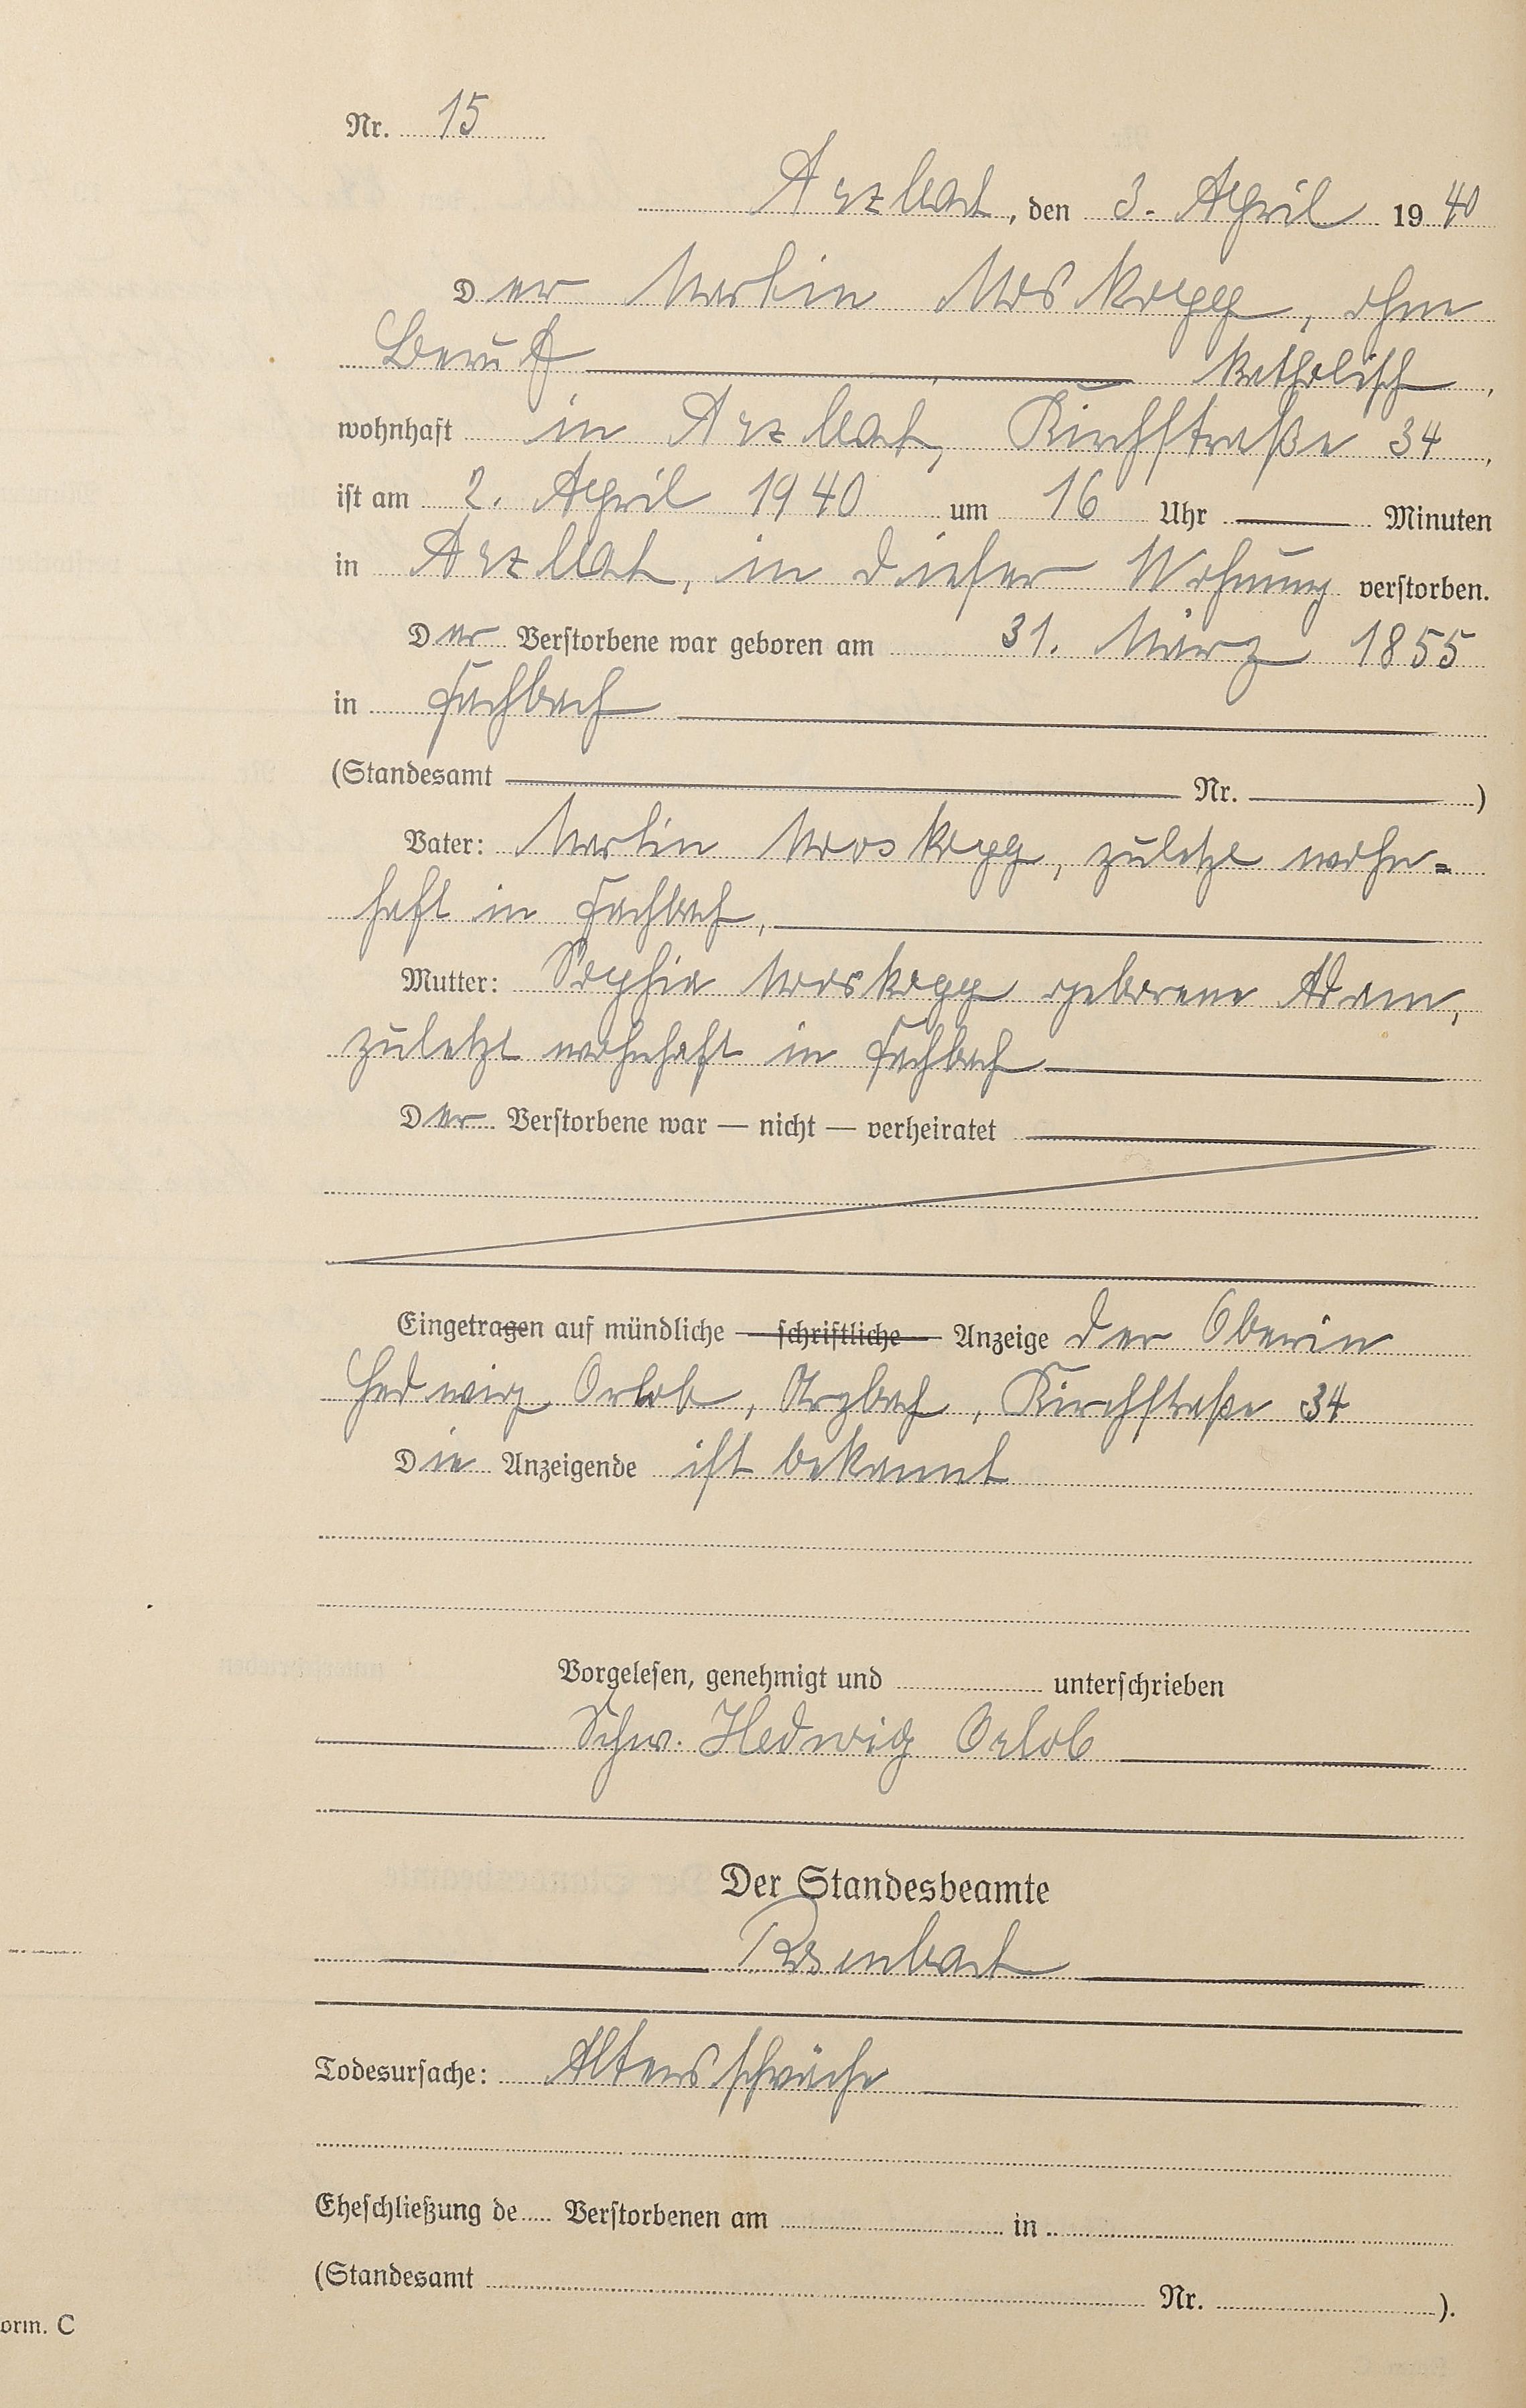 Nr. 15
Arzbach, den 3. April 1940
Der Martin Moskopp, ohne
Beruf katholisch,
wohnhaft in Arzbach, Kirchstraße 34,
ist am 2. April 1940 um 16 Uhr Minuten
in Arzbach, in dieser Wohnung verstorben.
Der Verstorbene war geboren am 31. März 1855
in Fachbach
(Standesamt Nr. )
Vater: Martin Moskopp, zuletzt wohn=
haft in Fachbach,
Mutter: Sophia Moskopp geborene Adam,
zuletzt wohnhaft in Fachbach
Der Verstorbene war — nicht — verheiratet
Eingetragen auf mündliche — schriftliche — Anzeige der Oberin
Hedwig Orlob, Arzbach, Kirchstraße 34
Die Anzeigende ist bekannt
Vorgelesen, genehmigt und unterschrieben
Schw. Hedwig Orlob
Der Standesbeamte
Todesursache: Altersschwäche
Eheschließung de Verstorbenen am in
(Standesamt Nr. ).
orm. C